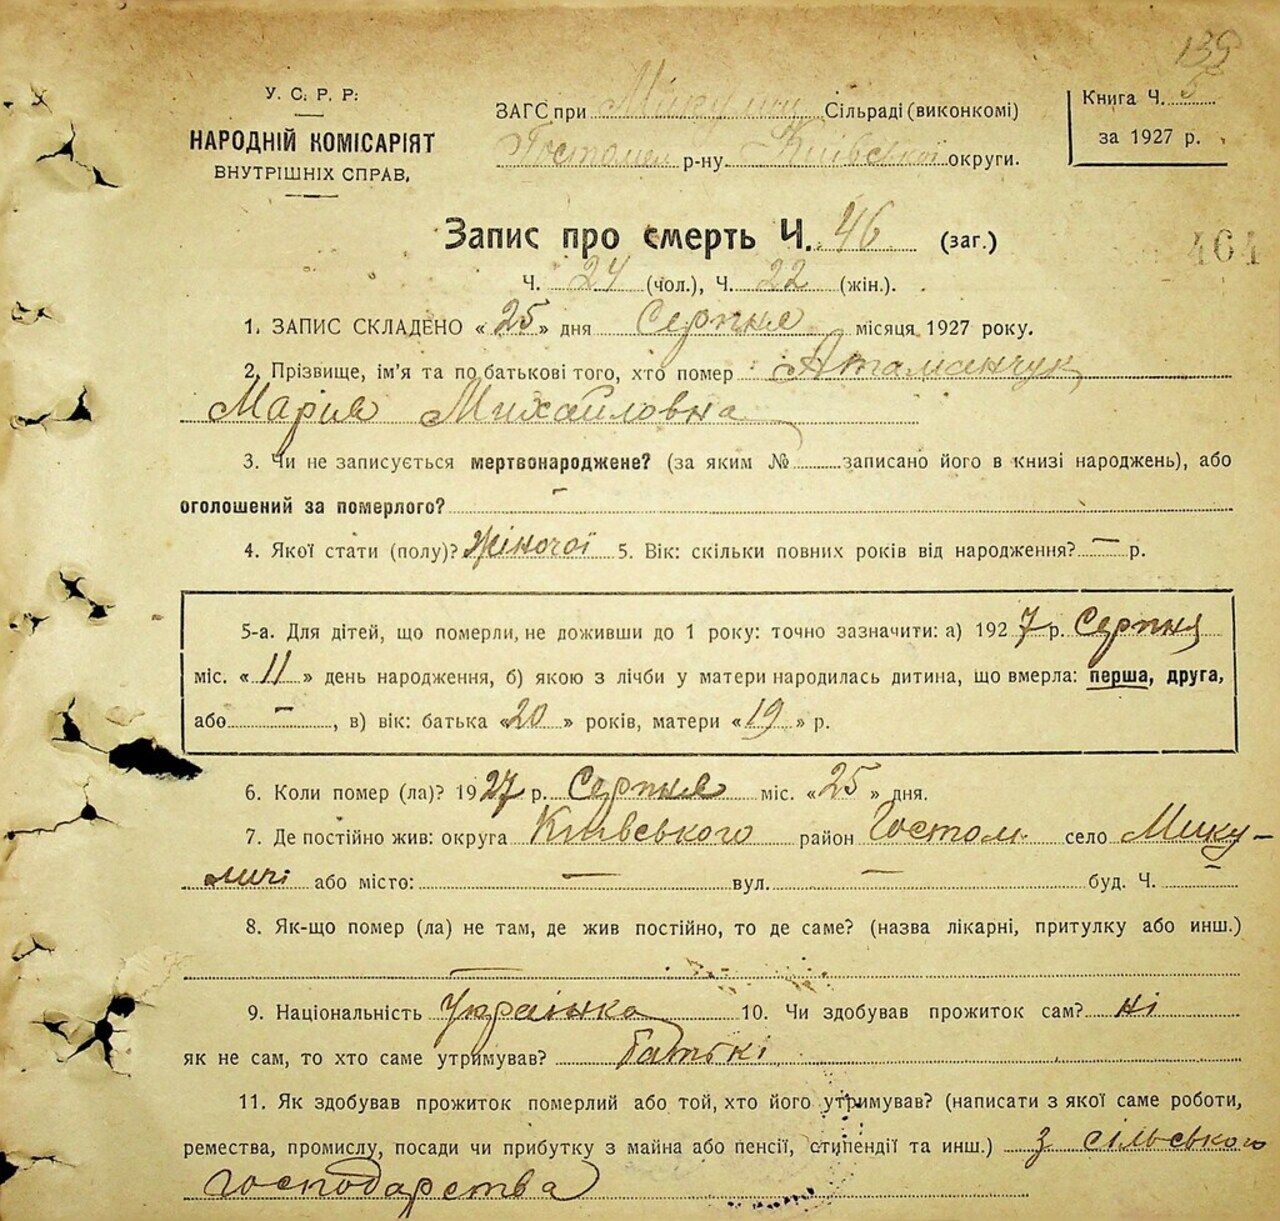 139
У. С. Р. Р.
НАРОДНІЙ КОМІСАРІЯТ
ВНУТРІШНІХ СПРАВ.
ЗАГС при Микулич Сільраді (виконкомі)
Гостомел р-ну Київської округи.
Книга Ч. 5
за 1927 р.
Запис про смерть Ч. 46 (заг.)
464
Ч. 24 (чол.), Ч. 22 (жін.).
1. ЗАПИС СКЛАДЕНО «25» дня Серпня місяця 1927 року.
2. Прізвище, ім'я та по батькові того, хто помер Атаманчук
Мария Михайловна
3. Чи не записується мертвонароджене? (за яким № записано його в книзі народжень), або
оголошений за померлого? —
4. Якої стати (полу)? жіночої 5. Вік: скільки повних років від народження? — р.
5-а. Для дітей, що померли, не доживши до 1 року: точно зазначити: а) 1927 р. Серпня
міс. «11» день народження, б) якою з лічби у матери народилась дитина, що вмерла: перша, друга,
або —, в) вік: батька «20» років, матери «19» р.
6. Коли помер (ла)? 1927 р. Серпня міс. «25» дня.
7. Де постійно жив: округа Київського район Гостом. село Мику-
личі або місто: — вул. — буд. Ч. —
8. Як-що помер (ла) не там, де жив постійно, то де саме? (назва лікарні, притулку або инш.)
—
9. Національність Українка 10. Чи здобував прожиток сам? ні
як не сам, то хто саме утримував? батькі
11. Як здобував прожиток померлий або той, хто його утримував? (написати з якої саме роботи,
ремества, промислу, посади чи прибутку з майна або пенсії, стипендії та инш.) з сільського
господарства